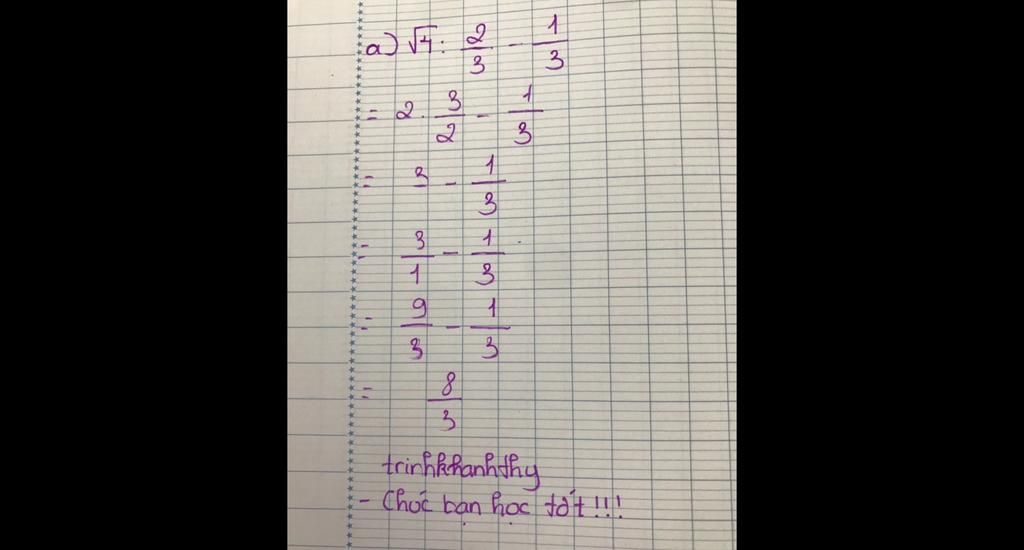 a) √4 : 2/3 - 1/3
= 2 . 3/2 - 1/3
= 3 - 1/3
= 3/1 - 1/3
= 9/3 - 1/3
= 8/3
trinhkhanhthy
- Chúc bạn học tốt!!!